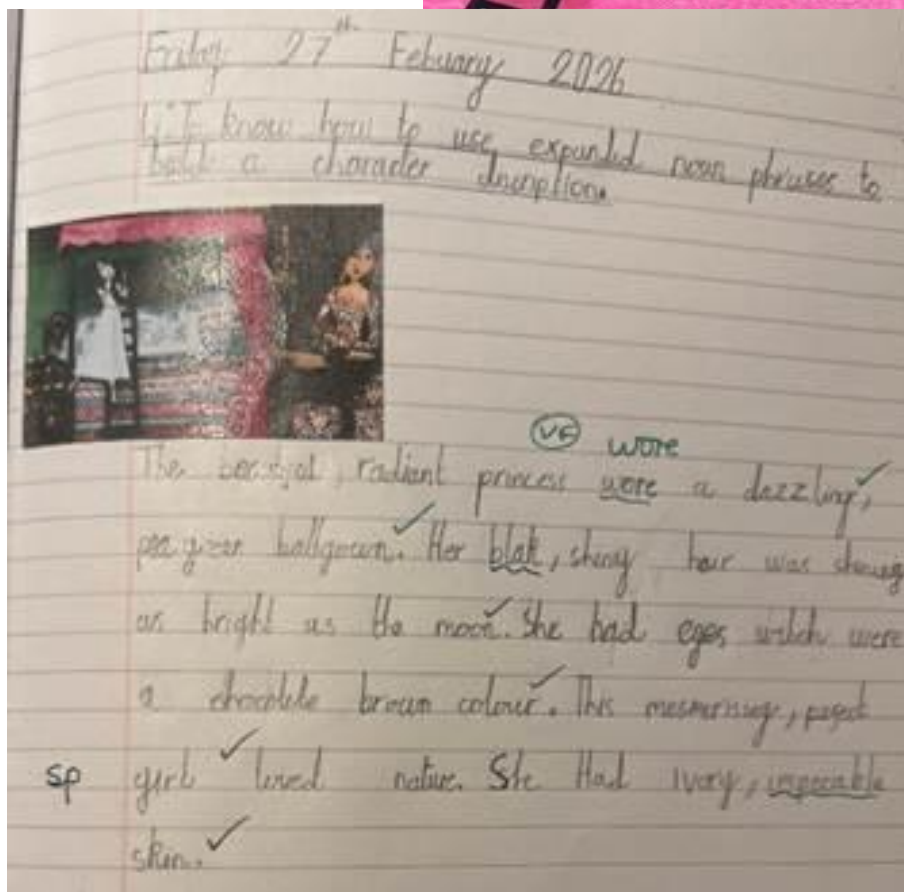 Friday 27th Febuary 2026
L.I. know how to use expanded noun phrases to
build a character
VF wore
The , radiant princess wore a dazzling,
pea green ballgown. Her blak, shiny hair was shining
as bright as the moon. She had eyes which were
a brown colour. This mesmerising,
sp girl loved nature. She Had ivory,
skin.